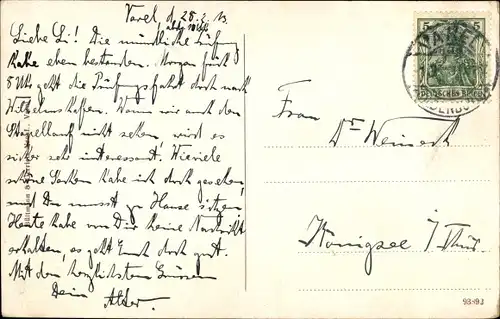 Varel, d. 28.2.13.
abds 10 Uhr
Liebe Li! Die mündliche Prüfung
habe eben bestanden. Morgen früh
8 Uhr geht die Prüfungsfahrt doch nach
Wilhelmshaven. Wenn wir auch den
Stapellauf nicht sehen, wird es
sicher sehr interessant. Wieviele
schöne Sachen habe ich doch gesehen,
und Du musst zu Hause sitzen.
Heute habe von Dir keine Nachricht
erhalten, es geht Euch doch gut.
Mit den herzlichsten Grüssen
Dein Alter.
5 5
DEUTSCHES REICH
VAREL
OLDENBURG
Frau
Dr. Weinert
Königsee i/Thür.
93-93